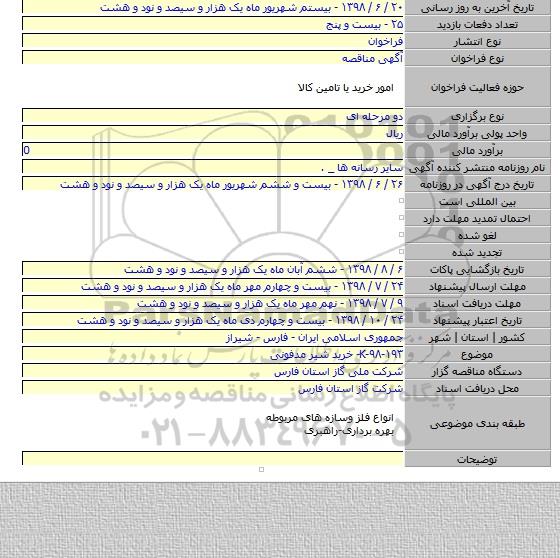 تاریخ آخرین به روز رسانی ۲۰ / ۶ / ۱۳۹۸ - بیستم شهریور ماه یک هزار و سیصد و نود و هشت
تعداد دفعات بازدید ۲۵ - بیست و پنج
نوع انتشار فراخوان
نوع فراخوان آگهی مناقصه
حوزه فعالیت فراخوان امور خرید یا تامین کالا
نوع برگزاری دو مرحله ای
واحد پولی برآورد مالی ریال
برآورد مالی 0
نام روزنامه منتشر کننده آگهی سایر رسانه ها _ .
تاریخ درج آگهی در روزنامه ۲۶ / ۶ / ۱۳۹۸ - بیست و ششم شهریور ماه یک هزار و سیصد و نود و هشت
بین المللی است
احتمال تمدید مهلت دارد
لغو شده
تجدید شده
تاریخ بازگشایی پاکات ۶ / ۸ / ۱۳۹۸ - ششم آبان ماه یک هزار و سیصد و نود و هشت
مهلت ارسال پیشنهاد ۲۴ / ۷ / ۱۳۹۸ - بیست و چهارم مهر ماه یک هزار و سیصد و نود و هشت
مهلت دریافت اسناد ۹ / ۷ / ۱۳۹۸ - نهم مهر ماه یک هزار و سیصد و نود و هشت
تاریخ اعتبار پیشنهاد ۲۴ / ۱۰ / ۱۳۹۸ - بیست و چهارم دی ماه یک هزار و سیصد و نود و هشت
کشور | استان | شهر جمهوری اسلامی ایران - فارس - شیراز
موضوع K-۹۸-۱۹۳- خرید شیر مدفونی
دستگاه مناقصه گزار شرکت ملی گاز استان فارس
محل دریافت اسناد شرکت گاز استان فارس
طبقه بندی موضوعی انواع فلز وسازه های مربوطه
بهره برداری-راهبری
توضیحات
پایگاه اطلاع رسانی مناقصه و مزایده
۰۲۱-۸۸۳۴۹۶۷۰-۵